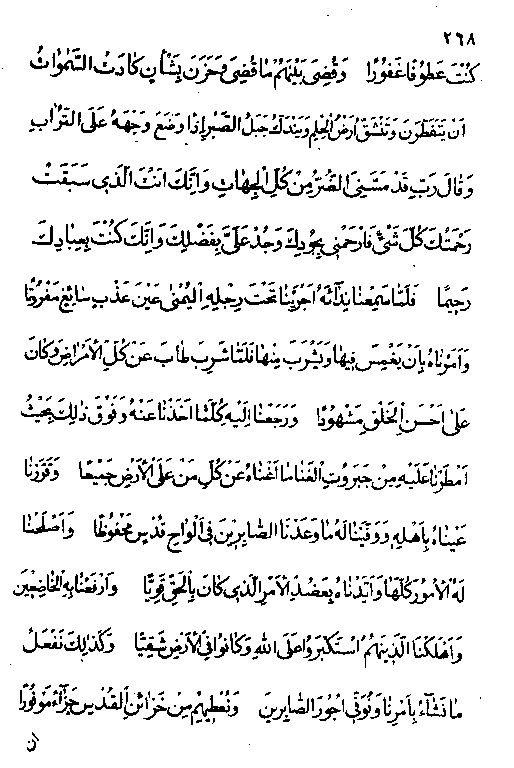 ٢٦٨
كُنْتَ عَطُوفًا غَفُورًا وَقُضِيَ بَيْنَهُمْ مَا قُضِيَ وَحَزَنَ بِشَأْنٍ كَادَتْ السَّمٰوَاتُ
اَنْ يَتَفَطَّرَنَ وَتَنْشَقَّ اَرْضُ الْحِلْمِ وَيَنْدَكَّ جَبَلُ الصَّبْرِ اِذًا وَضَعَ وَجْهَهُ عَلَى التُّرَابِ
وَقَالَ رَبِّ قَدْ مَسَّنِيَ الضُّرُّ مِنْ كُلِّ الْجِهَاتِ وَاِنَّكَ اَنْتَ الَّذِي سَبَقَتْ
رَحْمَتُكَ كُلَّ شَيْءٍ فَارْحَمْنِي بِجُودِكَ وَجُدْ عَلَيَّ بِفَضْلِكَ وَاِنَّكَ كُنْتَ بِعِبَادِكَ
رَحِيمًا فَلَمَّا سَمِعْنَا نِدَائَهُ اَجْرَيْنَا تَحْتَ رِجْلِهِ الْيُمْنٰى عَيْنَ عَذْبٍ سَائِغٍ مَفْرُوتًا
وَاَمَرْنَاهُ بِاَنْ يَغْمِسَ فِيهَا وَيَشْرَبَ مِنْهَا فَلَمَّا شَرِبَ طَابَ عَنْ كُلِّ الْاَمْرَاضِ وَكَانَ
عَلٰى اَحْسَنِ الْخَلْقِ مَشْهُودًا وَرَجَعْنَا اِلَيْهِ كُلَّمَا اَخَذْنَا عَنْهُ وَفَوْقَ ذٰلِكَ بِحَيْثُ
اَمْطَرْنَا عَلَيْهِ مِنْ جَبَرُوتِ الْغِنَا مَا اَغْنَاهُ عَنْ كُلِّ مَنْ عَلَى الْاَرْضِ جَمِيعًا وَقَرَّرْنَا
عَيْنَاهُ بِاَهْلِهِ وَوَفَّيْنَا لَهُ مَا وَعَدْنَا الصَّابِرِينَ فِي اَلْوَاحِ قُدْسٍ مَحْفُوظًا وَاَصْلَحْنَا
لَهُ الْاُمُورَ كُلَّهَا وَاَيَّدْنَاهُ بِعَضُدِ الْاَمْرِ الَّذِي كَانَ بِالْحَقِّ قَوِيًّا وَاَرْفَعْنَا بِهِ الْخَاضِعِينَ
وَاَهْلَكْنَا الَّذِينَهُمْ اسْتَكْبَرُوا عَلَى اللّٰهِ وَكَانُوا فِي الْاَرْضِ شَقِيًّا وَكَذٰلِكَ نَفْعَلُ
مَا نَشَاءُ بِاَمْرِنَا وَنُوَفِّي اُجُورَ الصَّابِرِينَ وَنُعْطِيهِمْ مِنْ خَزَائِنِ الْقُدْسِ جَزَاءً مَوْفُورًا